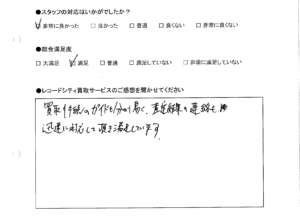 ●スタッフの対応はいかがでしたか？
☑非常に良かった □良かった □普通 □良くない □非常に良くない
●総合満足度
□大満足 ☑満足 □普通 □満足していない □非常に満足していない
●レコードシティ買取サービスのご感想を聞かせてください
買取手続のガイドも分り易く、査定結果の連絡も
迅速に対応して頂き満足しています